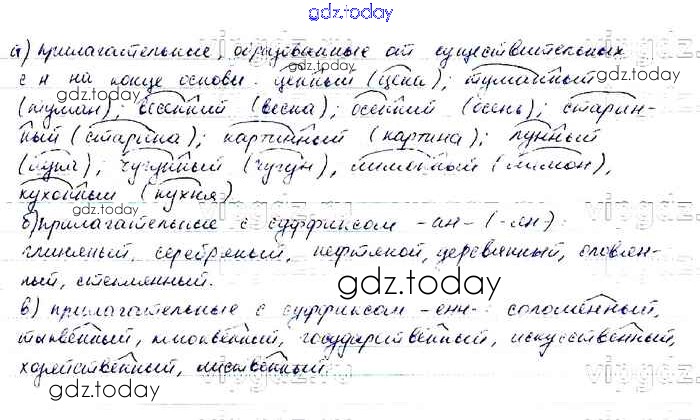 gdz.today
а) прилагательные, образованные от существительных
с н на конце основы: ценный (цена); туманный
(туман), весенний (весна); осенний (осень); старин-
ный (старина); картинный (картина); лунный
(луна); чугунный (чугун), лимонный (лимон),
кухонный (кухня)
б) прилагательные с суффиксом -ан- (-ян-):
глиняный, серебряный, нефтяной, деревянный, оловян-
ный, стеклянный.
gdz.today
в) прилагательные с суффиксом -енн-: соломенный,
тыквенный, клюквенный, государственный, искусственный,
хозяйственный, лиственный.
gdz.today